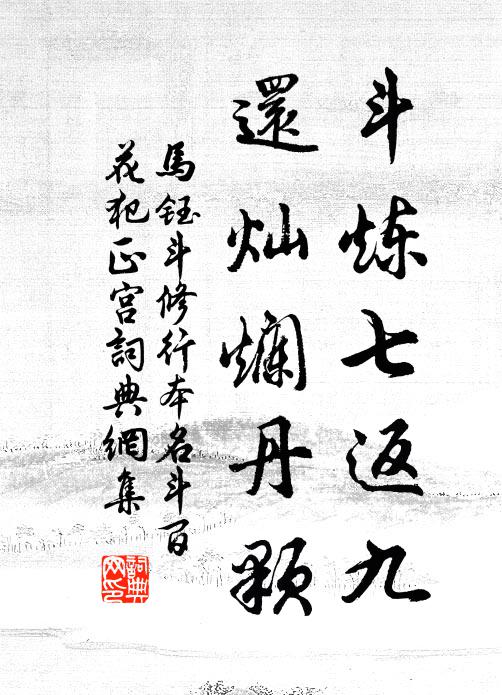 斗炼七返九
還灿爛丹顆
馬鈺斗修行本名斗百
花犯正宫詞典網集
詞典网印